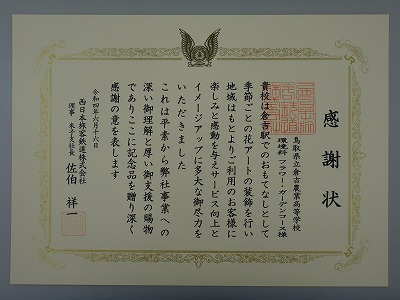 感謝状
鳥取県立倉吉農業高等学校
環境科 フラワー・ガーデンコース様
貴校は倉吉駅でのおもてなしとして
季節ごとの花アートの装飾を行い
地域はもとよりご利用のお客様に
楽しみと感動を与えサービス向上と
イメージアップに多大な御尽力を
いただきました
これは平素から弊社事業への
深い御理解と厚い御支援の賜物
でありここに記念品を贈り深く
感謝の意を表します
令和四年六月十六日
西日本旅客鉄道株式会社
理事 米子支社長 佐伯 祥一